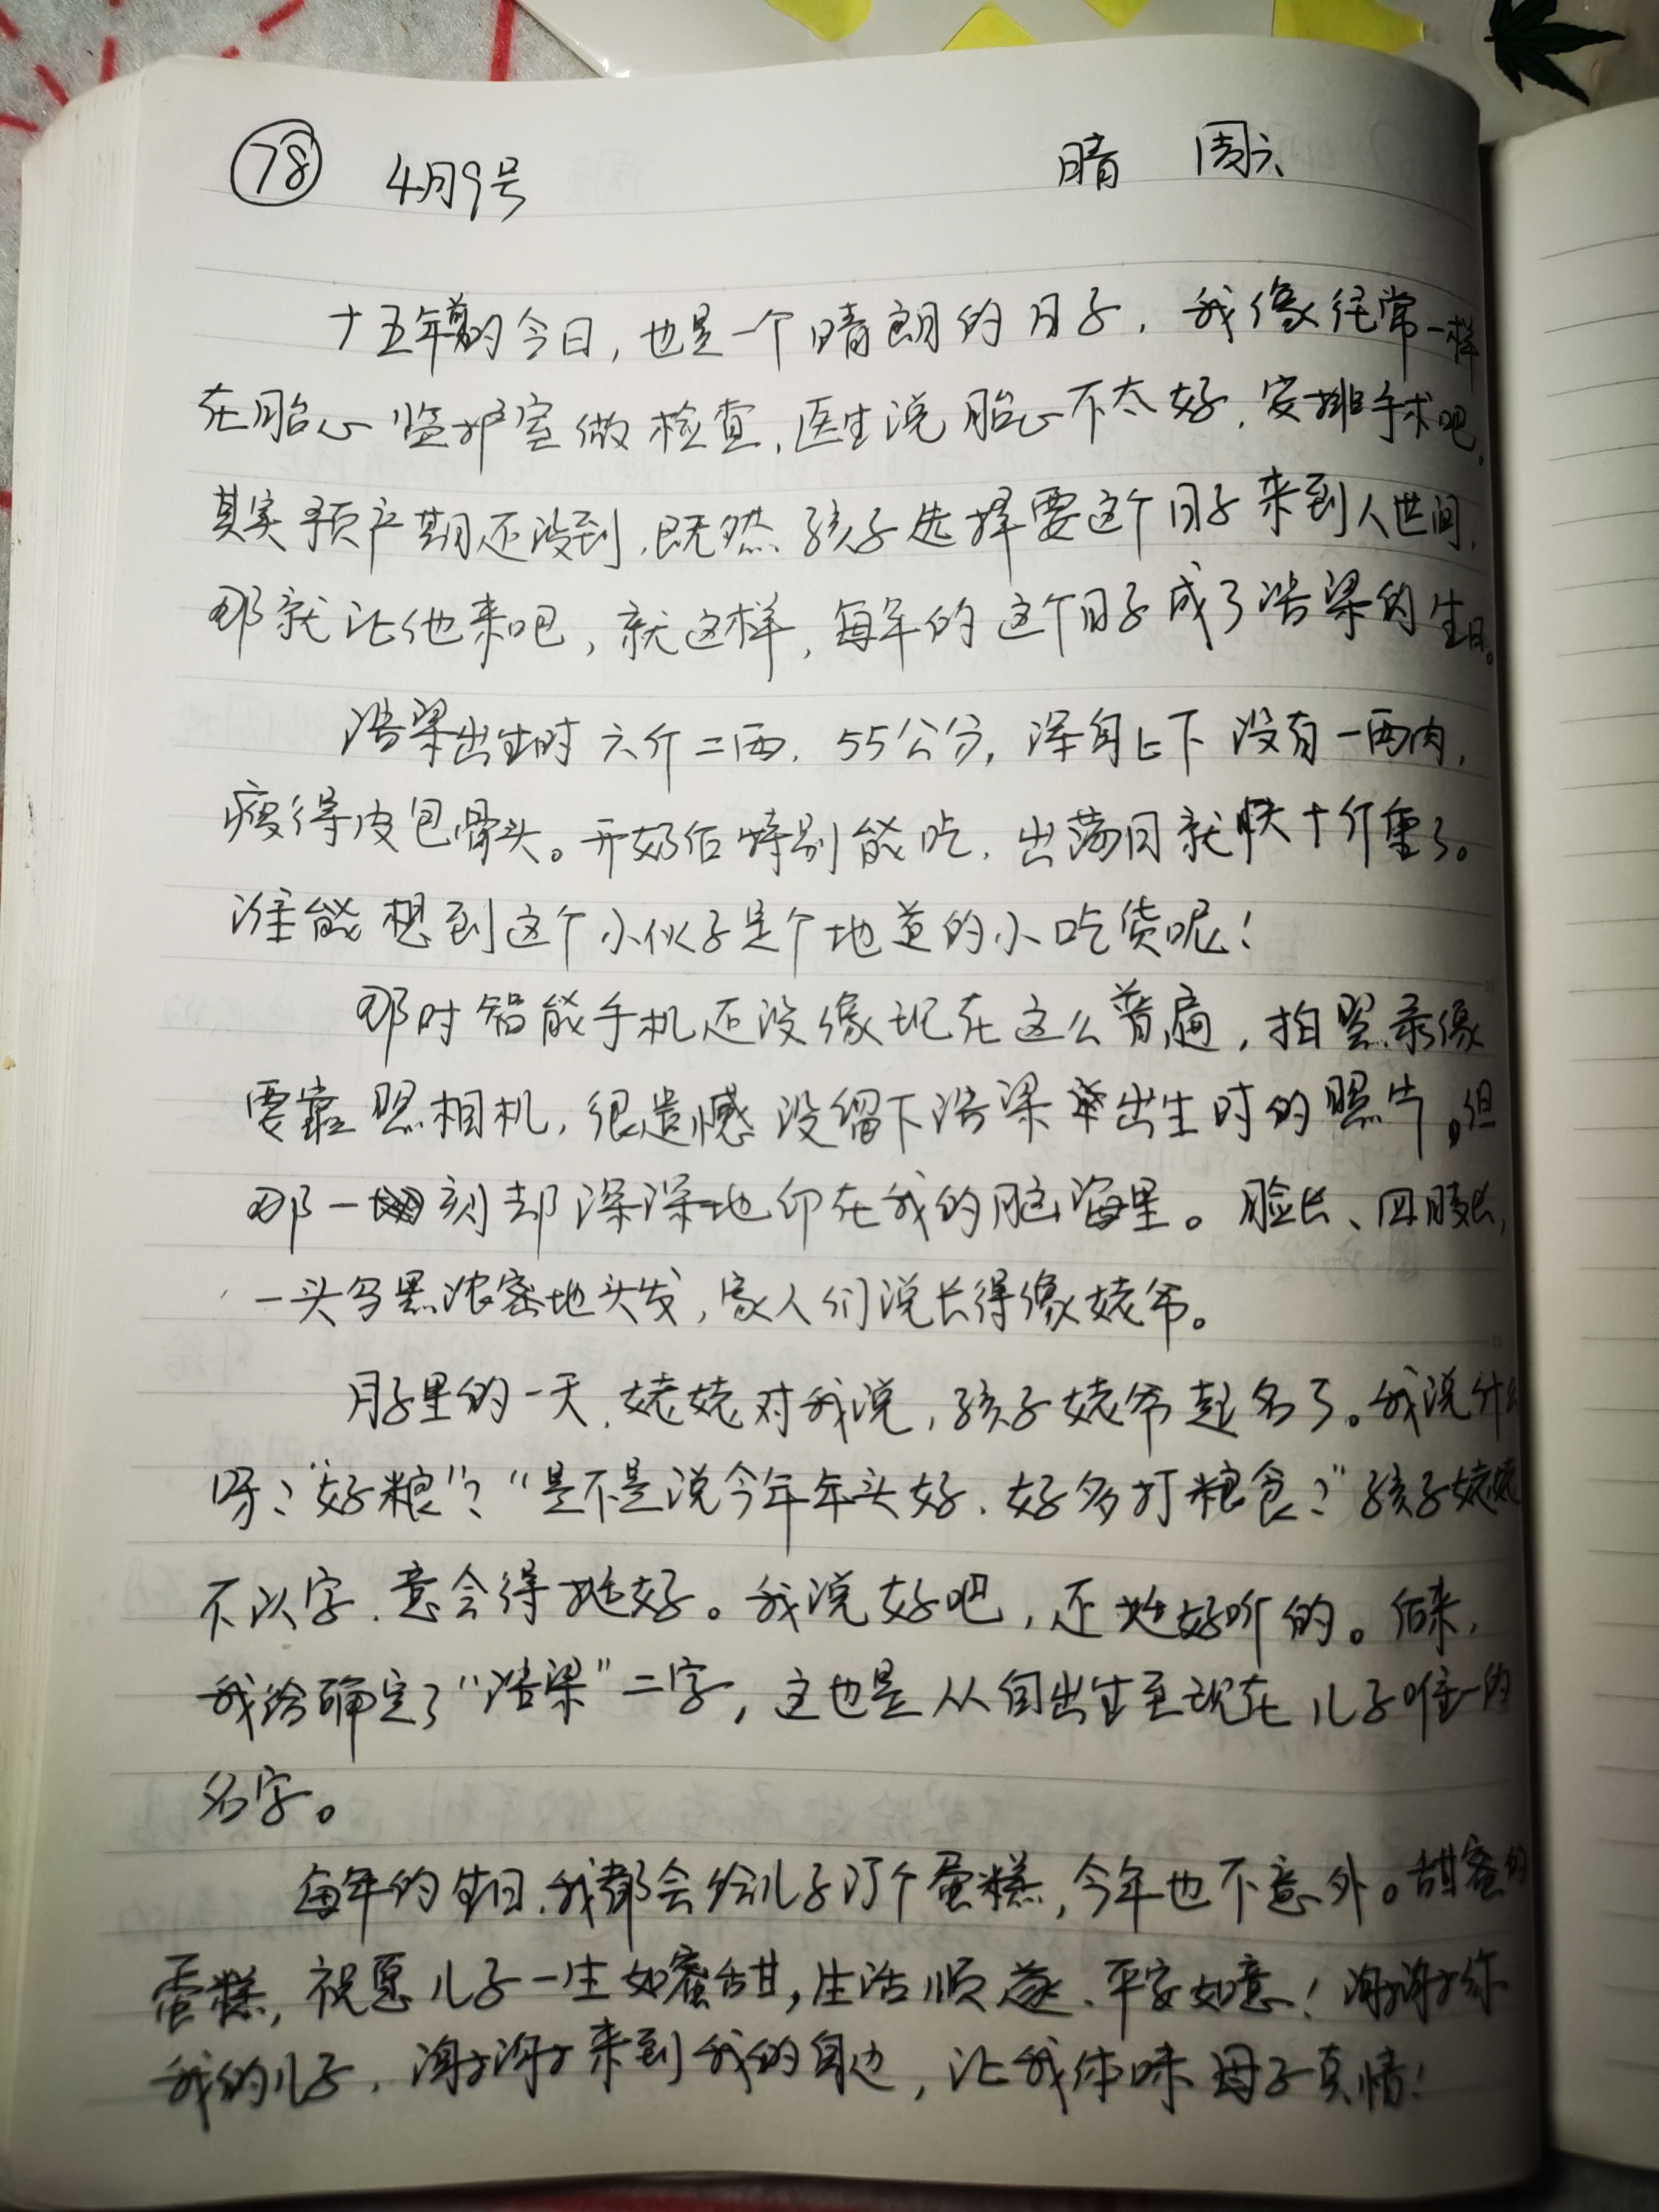 78 4月9号 晴 周六
十五年前的今日，也是一个晴朗的日子，我像往常一样
在胎心监护室做检查，医生说胎心不太好，安排手术吧。
其实预产期还没到，既然孩子选择要这个日子来到人世间，
那就让他来吧，就这样，每年的这个日子成了浩梁的生日。
浩梁出生时六斤二两，55公分，浑身上下没有一两肉，
瘦得皮包骨头。开奶后特别能吃，出满月就快十斤重了。
谁能想到这个小伙子是个地道的小吃货呢！
那时智能手机还没像现在这么普遍，拍照录像
要靠照相机，很遗憾没留下浩梁出生时的照片。但
那一刻却深深地印在我的脑海里。脸长、四肢长，
一头乌黑浓密地头发，家人们说长得像姥爷。
月子里的一天，姥姥对我说，孩子姥爷起名了。我说什么
呀？“好粮”？“是不是说今年年头好，好多打粮食？”孩子姥姥
不认字，意会得挺好。我说好吧，还挺好听的。后来，
我给确定了“浩梁”二字，这也是从自出生至现在儿子唯一的
名字。
每年的生日，我都会给儿子订个蛋糕，今年也不意外。甜蜜的
蛋糕，祝愿儿子一生如蜜甜，生活顺遂、平安如意！谢谢你
我的儿子，谢谢来到我的身边，让我体味母子真情！